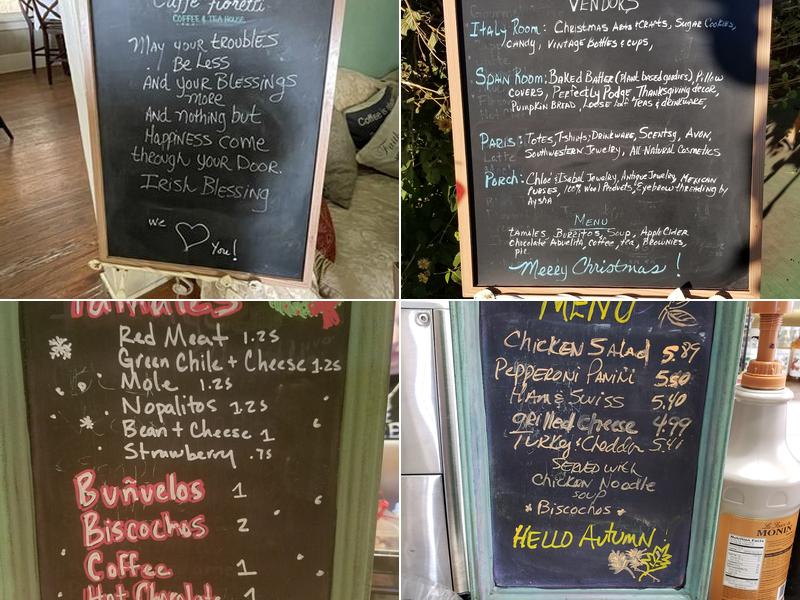 Caffe Fioretti
COFFEE & TEA HOUSE
May your TROUBLES
Be Less
AND your BLESSINGS
more
AND nothing but
HAPPINESS COME
through your DOOR.
IRISH BLESSING
we
You!
Coffee
VENDORS
Italy Room: Christmas Arts & Crafts, Sugar Cookies,
Candy, Vintage Bottles & cups,
Spain Room: Baked Batter (Plant based goodies), Pillow
covers, Perfectly Podge Thanksgiving decor,
Pumpkin Bread, Loose leaf Teas & drinkware,
Paris: Totes, Tshirts, Drinkware, Scentsy, Avon,
Southwestern Jewelry, All-Natural Cosmetics
Porch: Chloe & Isabel Jewelry, Antique Jewelry, Mexican
Purses, 100% Wool Products, Eyebrow threading by
Aysha
MENU
tamales, Burritos, Soup, Apple Cider
Chocolate Abuelita, coffee, tea, Brownies,
pie
Merry Christmas!
Tamales
Red Meat 1.25
Green Chile + Cheese 1.25
Mole 1.25
Nopalitos 1.25
Bean + Cheese 1
Strawberry .75
Buñuelos 1
Biscochos 2
Coffee 1
Hot Chocolate 1
MENU
Chicken Salad 5.89
Pepperoni Panini 5.50
Ham & Swiss 5.40
grilled cheese 4.99
Turkey & Cheddar 5.41
SERVED with
Chicken Noodle
soup
Biscochos
HELLO Autumn!
MONIN
Nutrition Facts